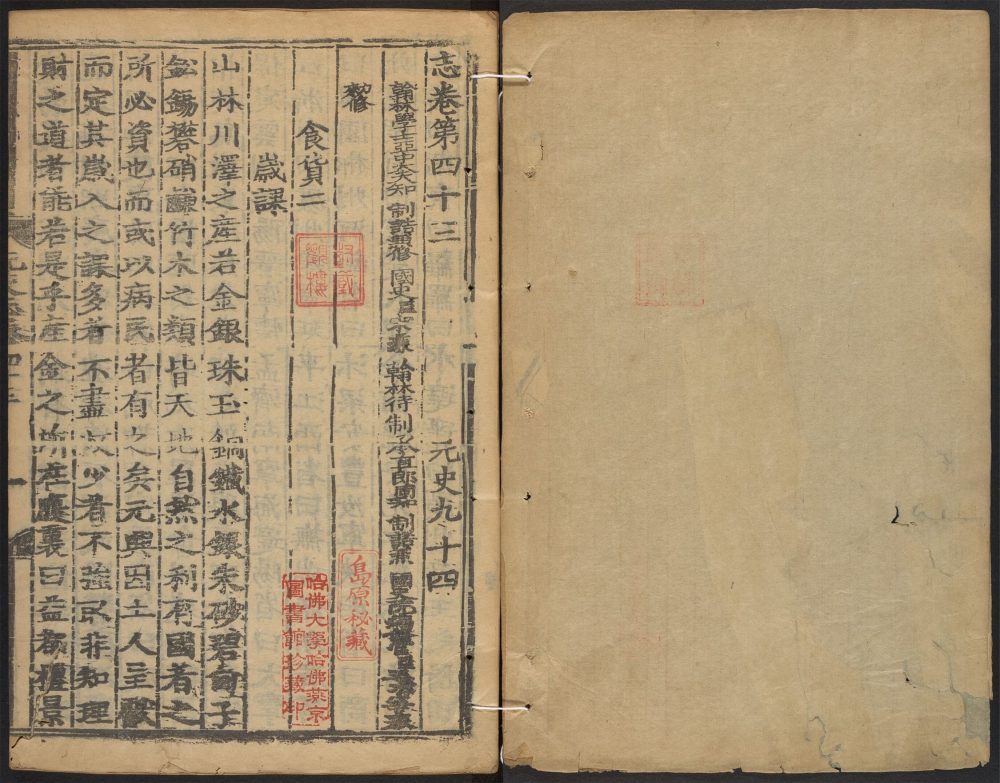 志卷第四十三 元史九十四
翰林學士亞中大夫知 制誥兼修 國史臣宋濂 翰林待制承直郎同知 制誥兼 國史院編修官臣王禕等奉
敕修
食貨二
歲課
山林川澤之產若金銀珠玉銅鐵水銀朱砂碧甸子
鉛錫礬硝鹻竹木之類皆天地自然之利有國者之
所必資也而或以病民者有之矣元興因土人呈獻
而定其歲入之課多者不盡收少者不強取非知理
財之道者能若是乎產金之所在腹裏曰益都檀景
島原秘藏
哈佛大學哈佛燕京
圖書館珍藏印